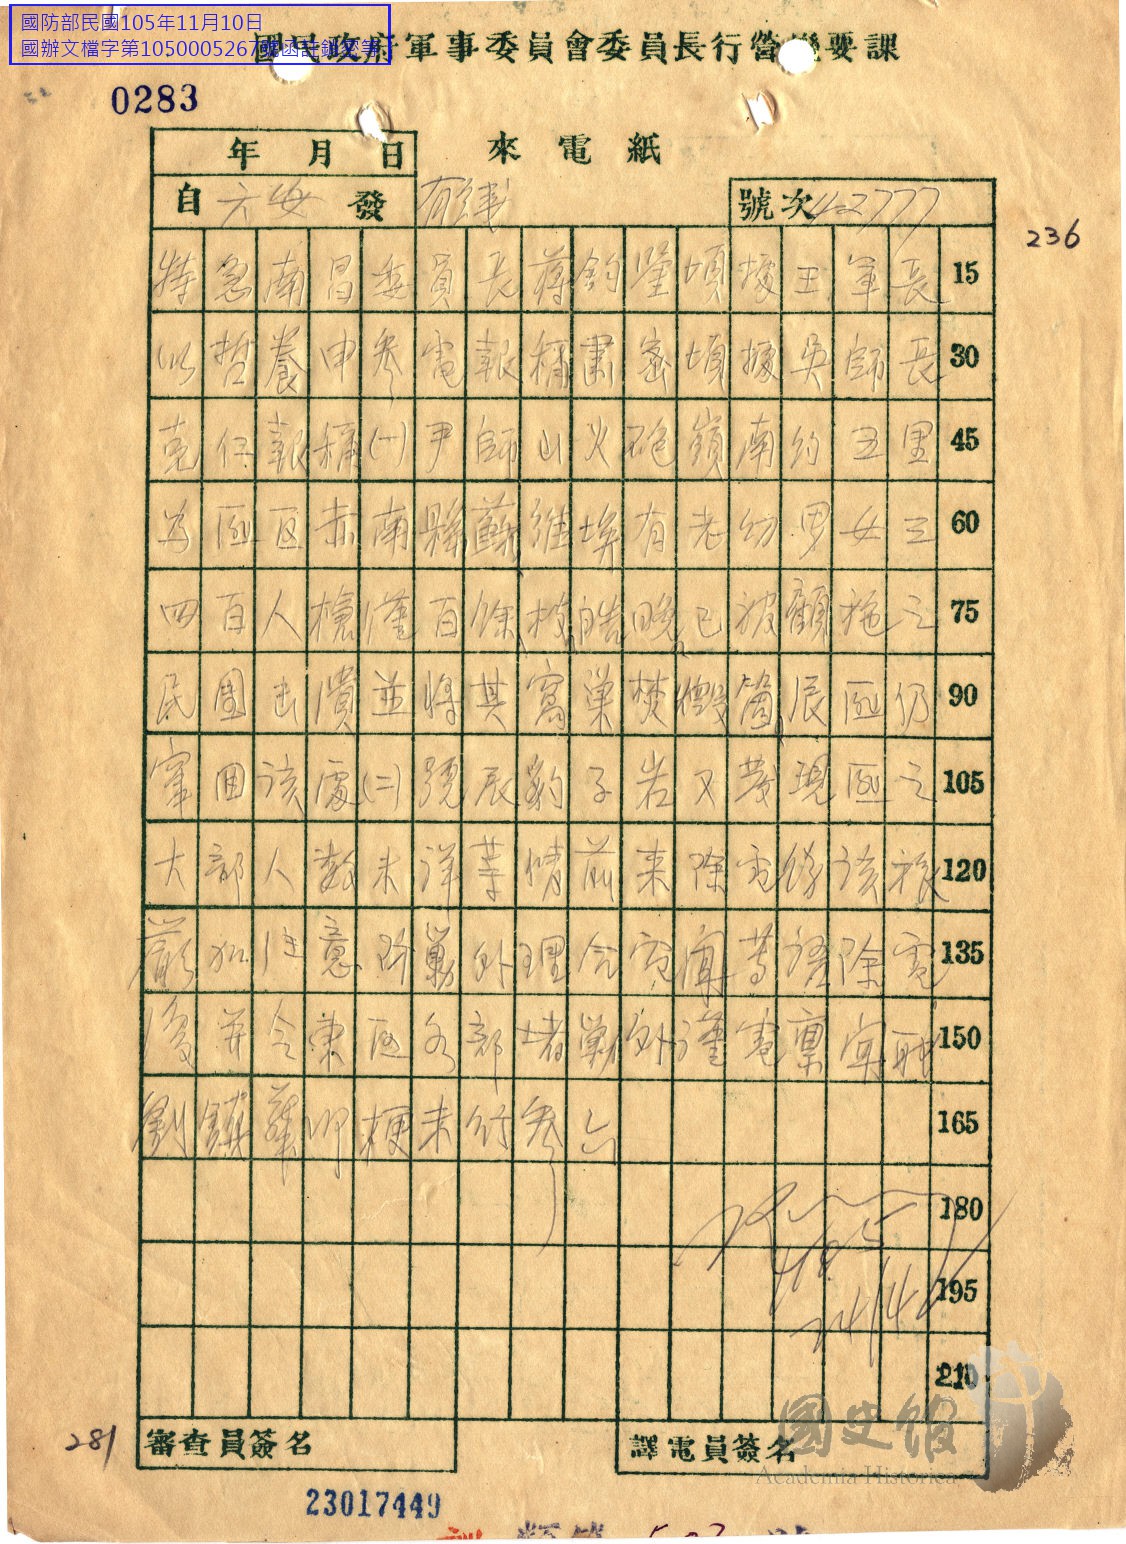 國防部民國105年11月10日
國辦文檔字第1050005267號函註銷密等
國民政府軍事委員會委員長行營機要課
0283
來電紙
年 月 日
自 六安 發
號次 42777
236
特急南昌委員長蔣鈞鑒頃據王軍長 15
以哲養申參電報稱肅密頃據吳師長 30
克仁報稱(一)尹師山火砲嶺南約五里 45
為匪區赤南縣蘇維埃有老幼男女三 60
四百人槍僅百餘枝皓晚已被顧施之 75
民團击潰並將其窩巢焚燬箇辰匪仍 90
窜回該處(二)號辰豹子岩又發現匪之 105
大部人數未詳等情前來除電飭該旅 120
嚴加注意防剿外理合電聞等語除電 135
復并令東區各部堵剿外謹電稟聞職 150
劉鎮華叩梗未行參六 165
180
195
210
審查員簽名
譯電員簽名
281
23017449
國史館
Academia Historica